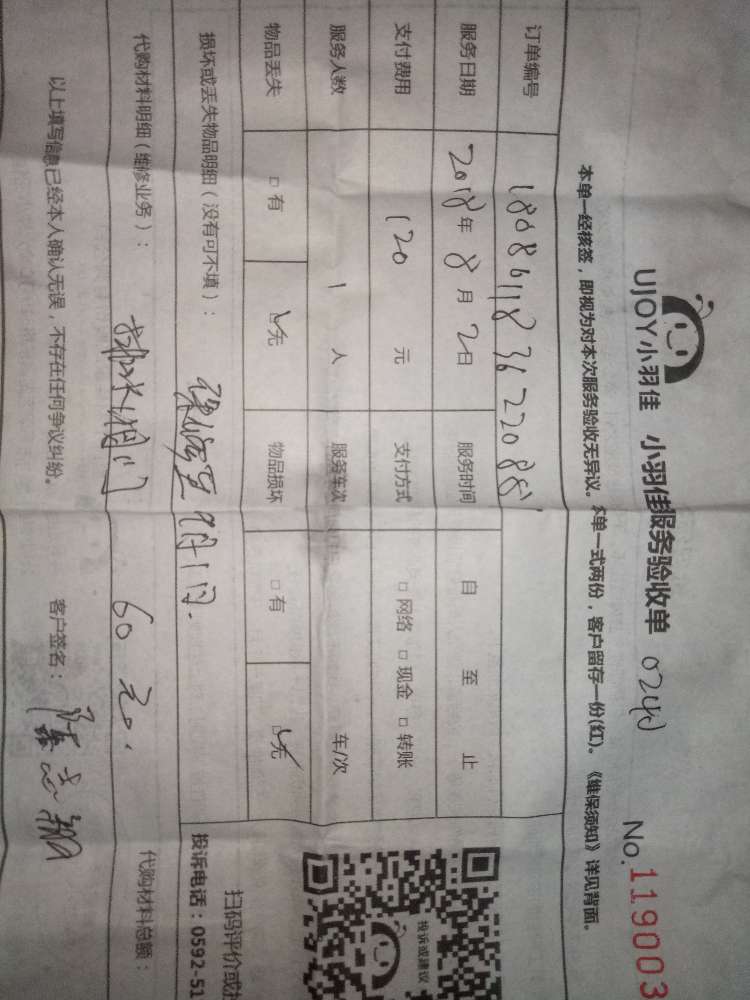 UJOY小羽佳 小羽佳服务验收单 024 No.119003
本单一经核签，即视为对本次服务验收无异议。本单一式两份，客户留存一份(红)。《维保须知》详见背面。
订单编号
服务日期 2018年 8月 2日 服务时间 自 至 止
支付费用 120 元 支付方式 □ 网络 □ 现金 □ 转账
服务人数 1 人 服务车次 车/次
物品丢失 □ 有 □无 物品损坏 □ 有 □无
损坏或丢失物品明细（没有可不填）：
代购材料明细（维修业务）： 60 元. 代购材料总额：
以上填写信息已经本人确认无误，不存在任何争议纠纷。 客户签名：
投诉或建议
扫码评价或
投诉电话：0592-51